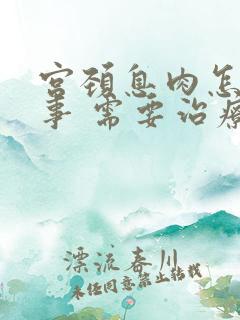 宫颈息肉怎
事 需要治疗
漂流春川
未经同意禁止转载